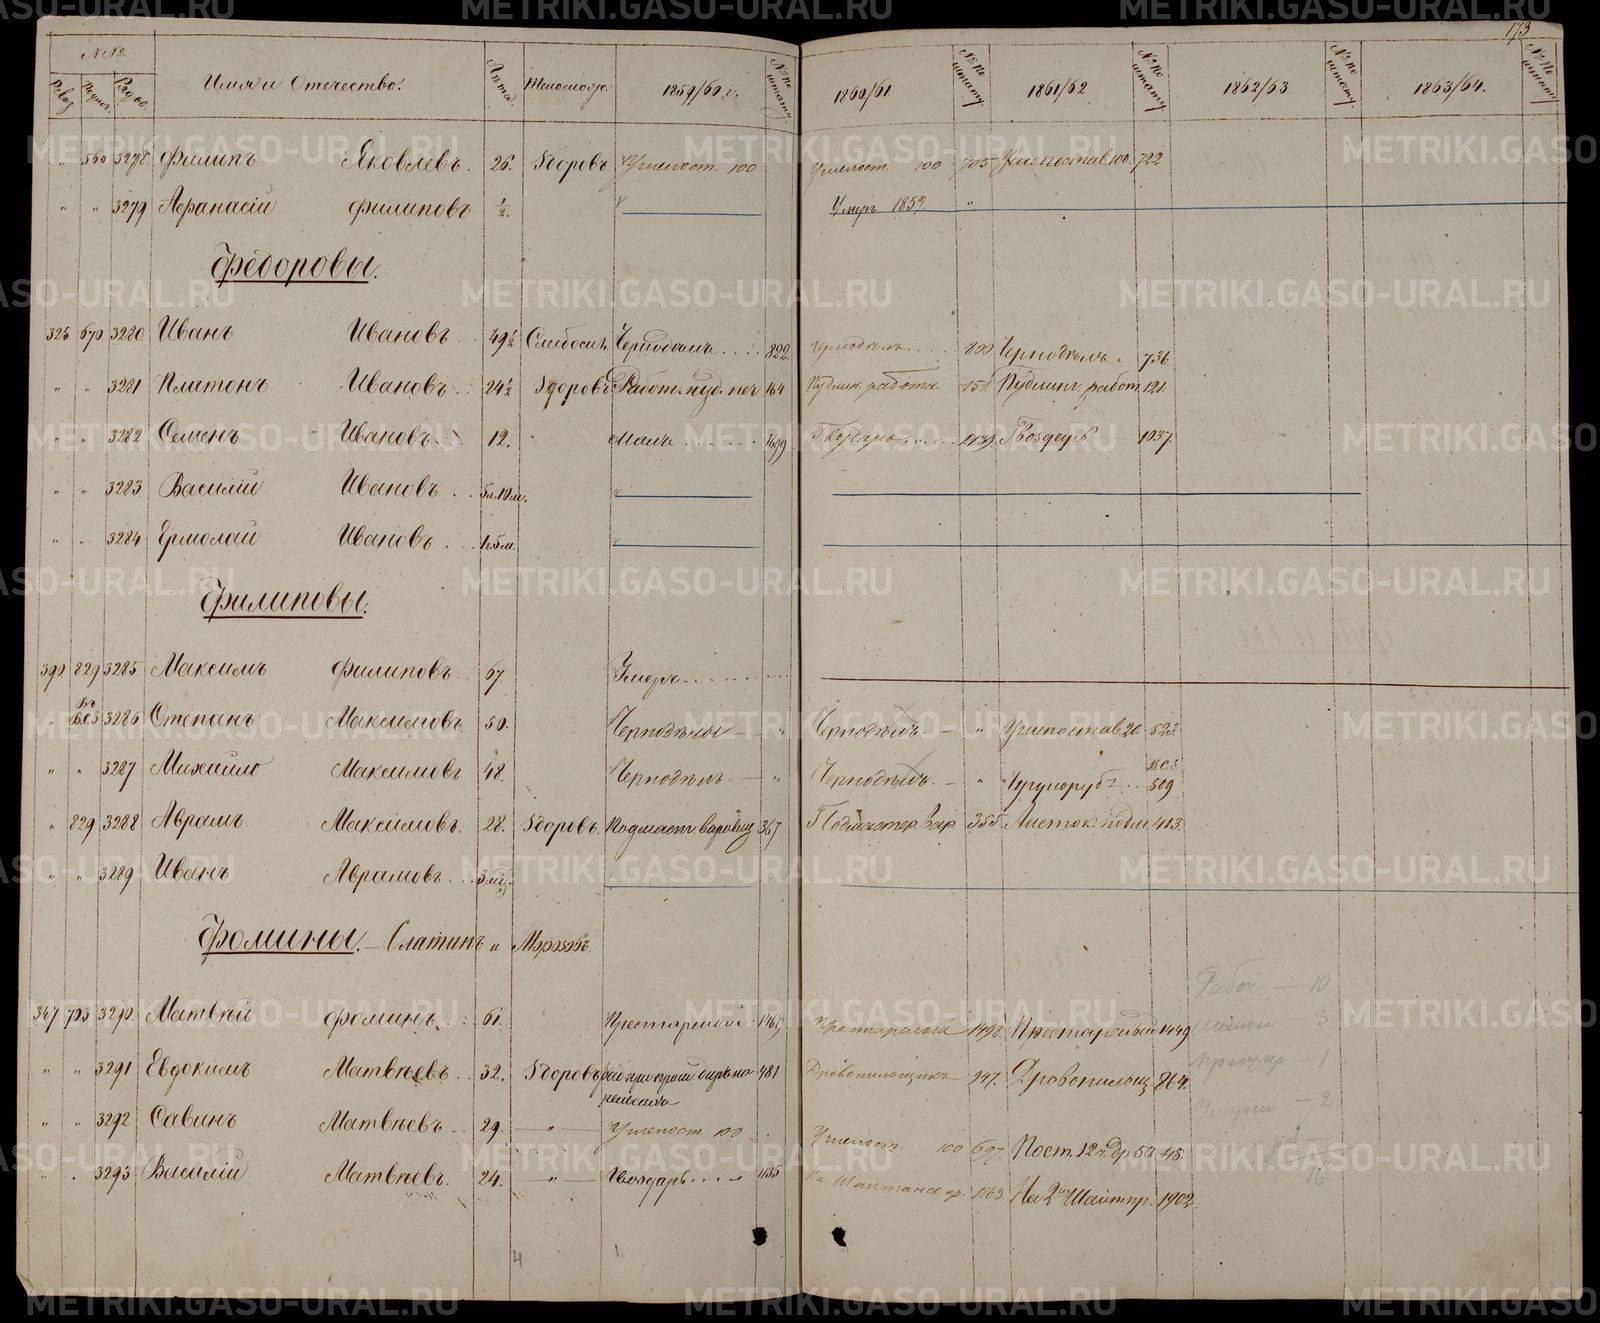 173
№№
Ревиз. Подил. Рядов. Имя и Отечество. Лѣта. Тѣлослож. 1859/60 г. №№ по штату. 1860/61. №№ по штату. 1861/62 №№ по штату. 1862/63 №№ по штату. 1863/64. №№ по штату.
" 560 3278 Филипъ Яковлевъ. 26. Здоровъ Углепост. 100 Углепост. 100 705 Углепостав 100. 722
" " 3279 Афанасій Филиповъ 1/2. " Умеръ 1859. "
Ѳедоровы.
325 670 3280 Иванъ Ивановъ 49 1/2 Слабосил. Чернодѣлъ 822. Чернодѣлъ 800 Чернодѣлъ. 736
" " 3281 Платонъ Ивановъ 24 1/2 Здоровъ Работ. пуд. печ 164 Пудлин. работн. 151 Пудлинг. работ. 121.
" " 3282 Семенъ Ивановъ 12. Малъ 1699 Гвоздарь 1139. Гвоздарь 1037
" " 3283 Василій Ивановъ 5 л. 10 м. "
" " 3284 Ермолай Ивановъ 1 г. 5 м. "
Филиповы.
390 829 3285 Максимъ Филиповъ 67 Умеръ
" 3286 Степанъ Максимовъ 50. Чернодѣлы " Чернодѣлъ " Углепостав 20. 523.
" " 3287 Михайло Максимовъ 48. Чернодѣлъ " Чернодѣлъ. " Чугуноруб. 509
" 829 3288 Аврамъ Максимовъ. 28. Здоровъ. Подмаст. варовщ 367 Подмастер. Вар 355. Листок. подм. 413.
" " 3289 Иванъ Аврамовъ 3 мѣс.
Фомины. – Слатинъ и Морозовъ
347 703 3290. Матвѣй Фоминъ 61. Престарелой 1469 Престарелой 1498. Престарѣлый 1449
" " 3291 Евдокимъ Матвѣевъ 32. Здоровъ 481 Дровопильщикъ 947. Дровопильщ. 864.
" " 3292 Савинъ Матвѣевъ 29. " Углепост. 100 Углепост. 100 697. Пост. 12 ч. др. 50 45.
" " 3293 Василій Матвѣевъ 24. " Гвоздарь 1135 На Шайтанс. пр. 1163. На 2й Шайт. пр. 1902.
Рабоч — 10
Малол 3
Престар — 1
Умерш — 2
16
4 1.
METRIKI.GASO-URAL.RU